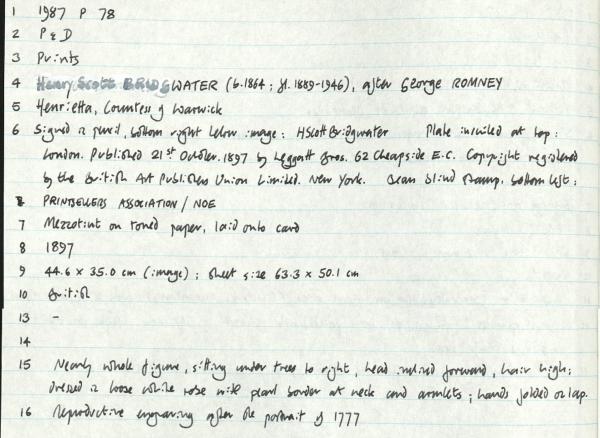 1 1987 P 78
2 P & D
3 Prints
4 Henry Scott BRIDGWATER (b.1864; fl. 1889-1946), after George ROMNEY
5 Henrietta, Countess of Warwick
6 Signed in pencil, bottom right below image: HScottBridgwater Plate inscribed at top:
London. Published 21st October.1897 by Leggatt Bros. 62 Cheapside E.C. Copyright registered
by the British Art Publishers Union Limited. New York. Bears blind stamp, bottom left:
PRINTSELLERS ASSOCIATION / NOE
7 Mezzotint on toned paper, laid onto card
8 1897
9 44.6 x 35.0 cm (image); sheet size 63.3 x 50.1 cm
10 British
13 -
14
15 Nearly whole figure, sitting under trees to right, head inclined forward, hair high;
dressed in loose white robe with pearl border at neck and armlets; hands folded on lap.
16 Reproductive engraving after the portrait of 1777